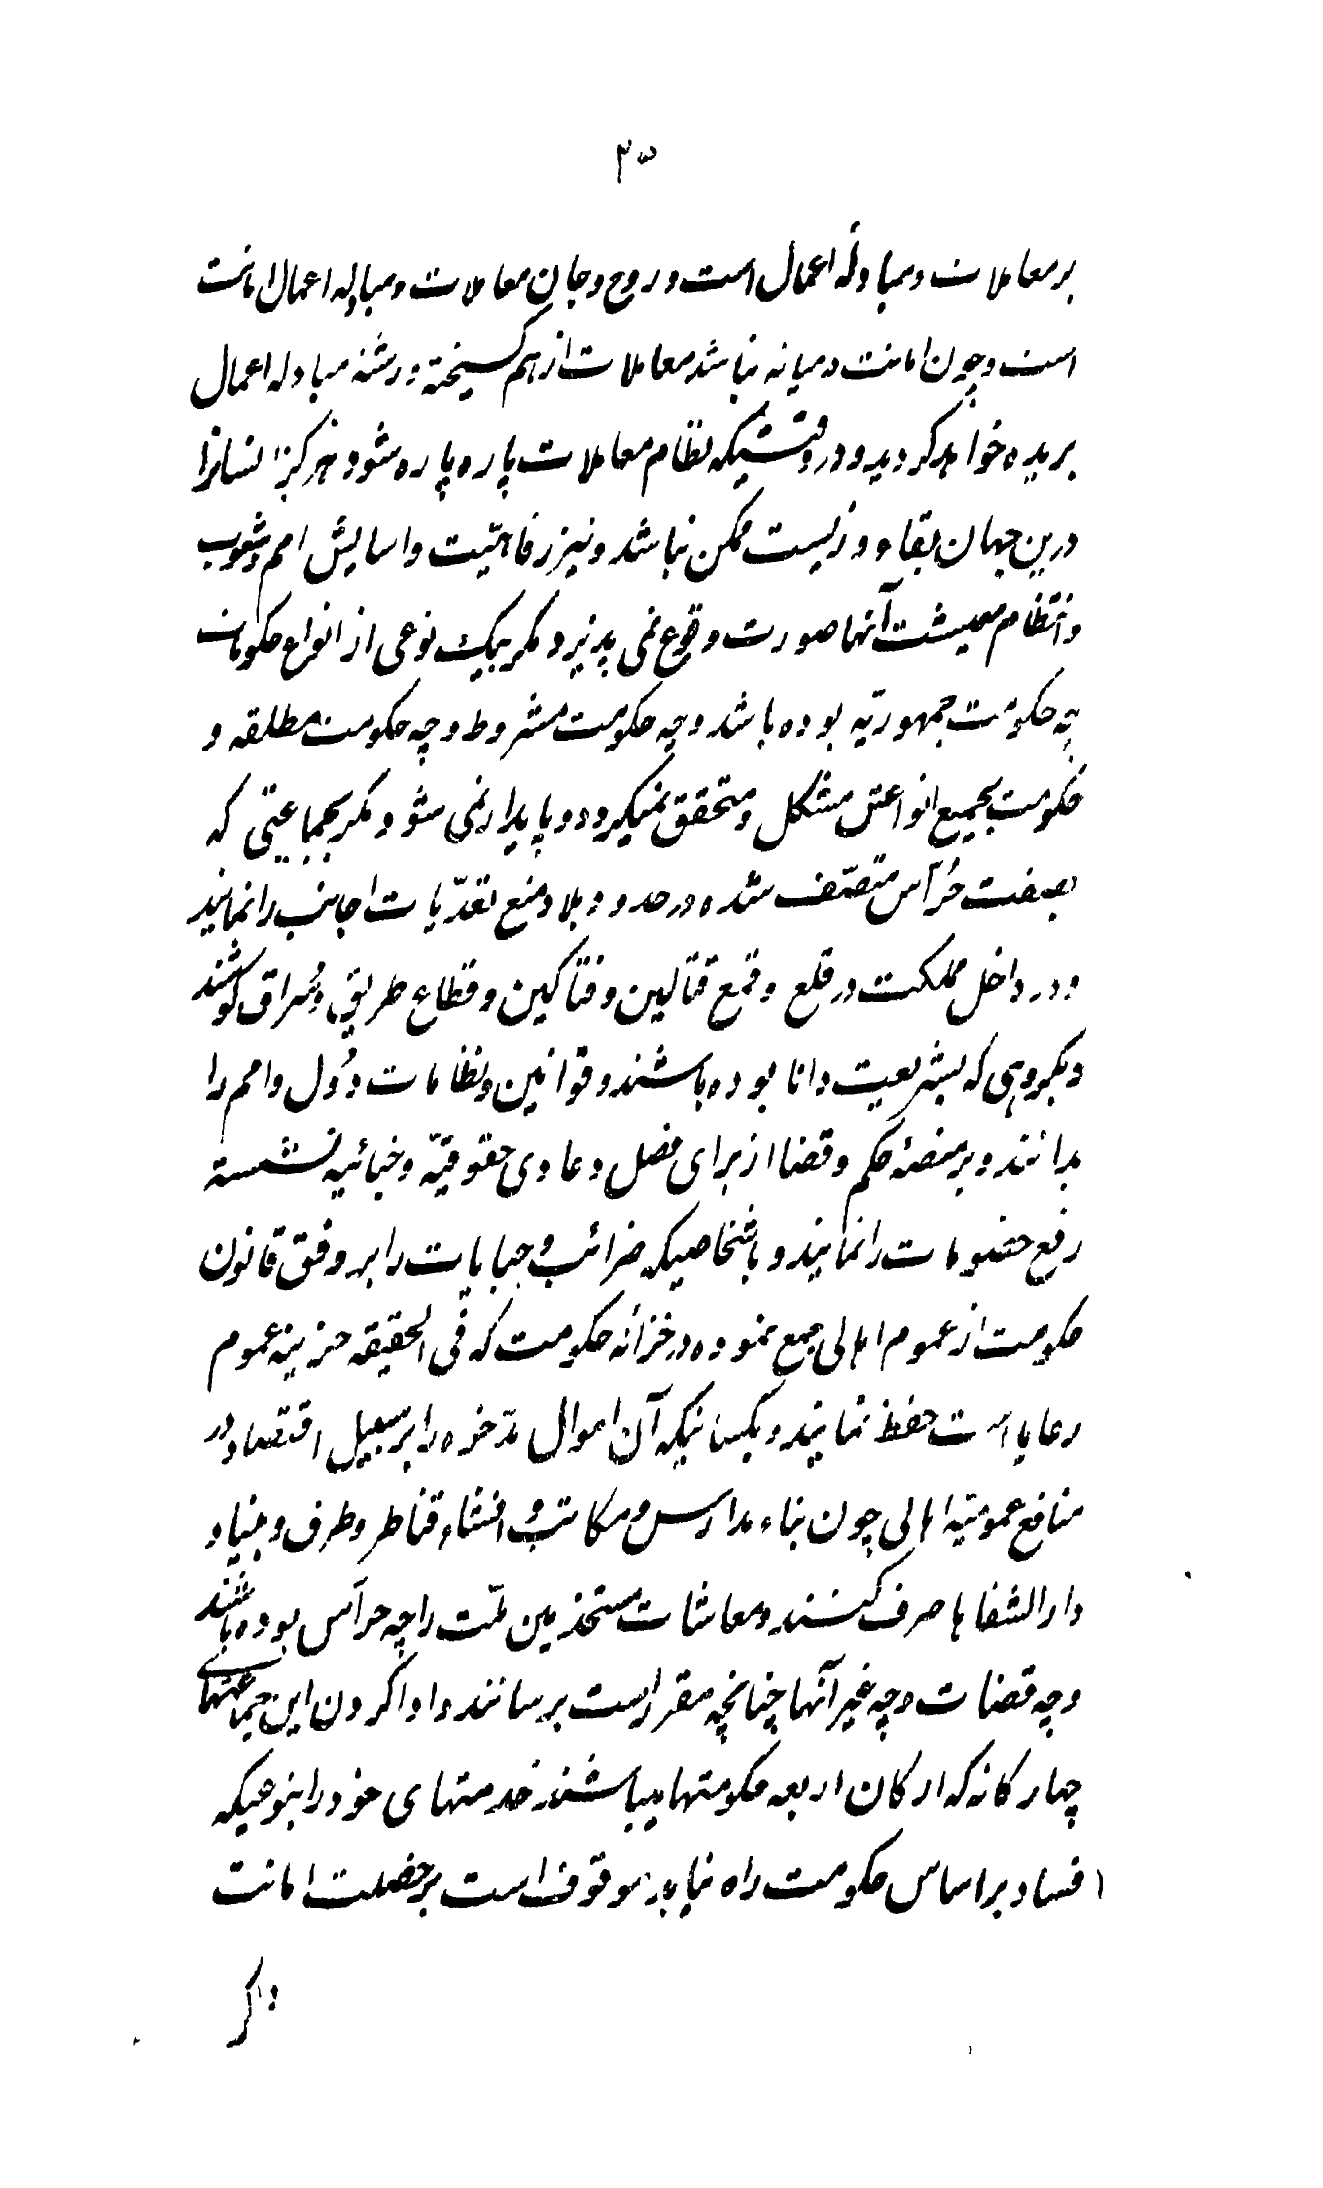 ۳۵
بر معاملات و مبادلهٔ اعمال است و روح و جان معاملات و مبادله اعمال امانت
است و چون امانت در میانه نباشد معاملات از هم کسیخته و رشتهٔ مبادله اعمال
بریده خواهد کردید و در وقتیکه نظام معاملات پاره پاره شود هرکز انسانرا
درین جهان بقاء و زیست ممکن نباشد و نیز رفاهیّت و اسایش امم و شعوب
و انتظام معیشت آنها صورت وقوع نمی پذیرد مکر بیک نوعی از انواع حکومات
چه حکومت جمهوریّه بوده باشد و چه حکومت مشروطه و چه حکومت مطلقه و
حکومت بجمیع انواعش متشکل و متحقق نمیکردد و پایدار نمی شود مکر بجماعتی که
بصفت حُرّاس متصّف شده در حدود بلاد منع تعدّیات اجانب را نمایند
و در داخل مملکت در قلع و قمع قتالین و فتاکین و قطاع طریق و سُراق کوشند
و بکروهی که بشریعت دانا بوده باشند و قوانین و نظامات دُول و امم را
بدانند و بر منصهٔ حکم و قضا از برای فصل دعاوی حقوقیّه و جنائیه نشسته
رفع خصومات را نمایند و باشخاصیکه ضرائب و جبایات را بر وفق قانون
حکومت از عموم اهالی جمع نموده در خزانه حکومت که فی الحقیقه خزینه عموم
رعایا است حفظ نمایند و بکسانیکه آن اموال مدّخره را بر سبیل اقتصاد در
منافع عمومیّه اهالی چون بناء مدارس و مکاتب و انشاء قناطر و طرف و بنیاد
دار الشفا ها صرف کنند و معاشات مستخدمین ملّت را چه حرّاس بوده باشند
و چه قضات و چه غیر آنها چنانچه مقرر است برسانند و ادا کردن این جماعتهای
چهار کانه که ارکان اربعه حکومتها میباشند خدمتهای خود را بنوعیکه
فساد بر اساس حکومت راه نیابد موقوف است بر خصلت امانت
و اکر